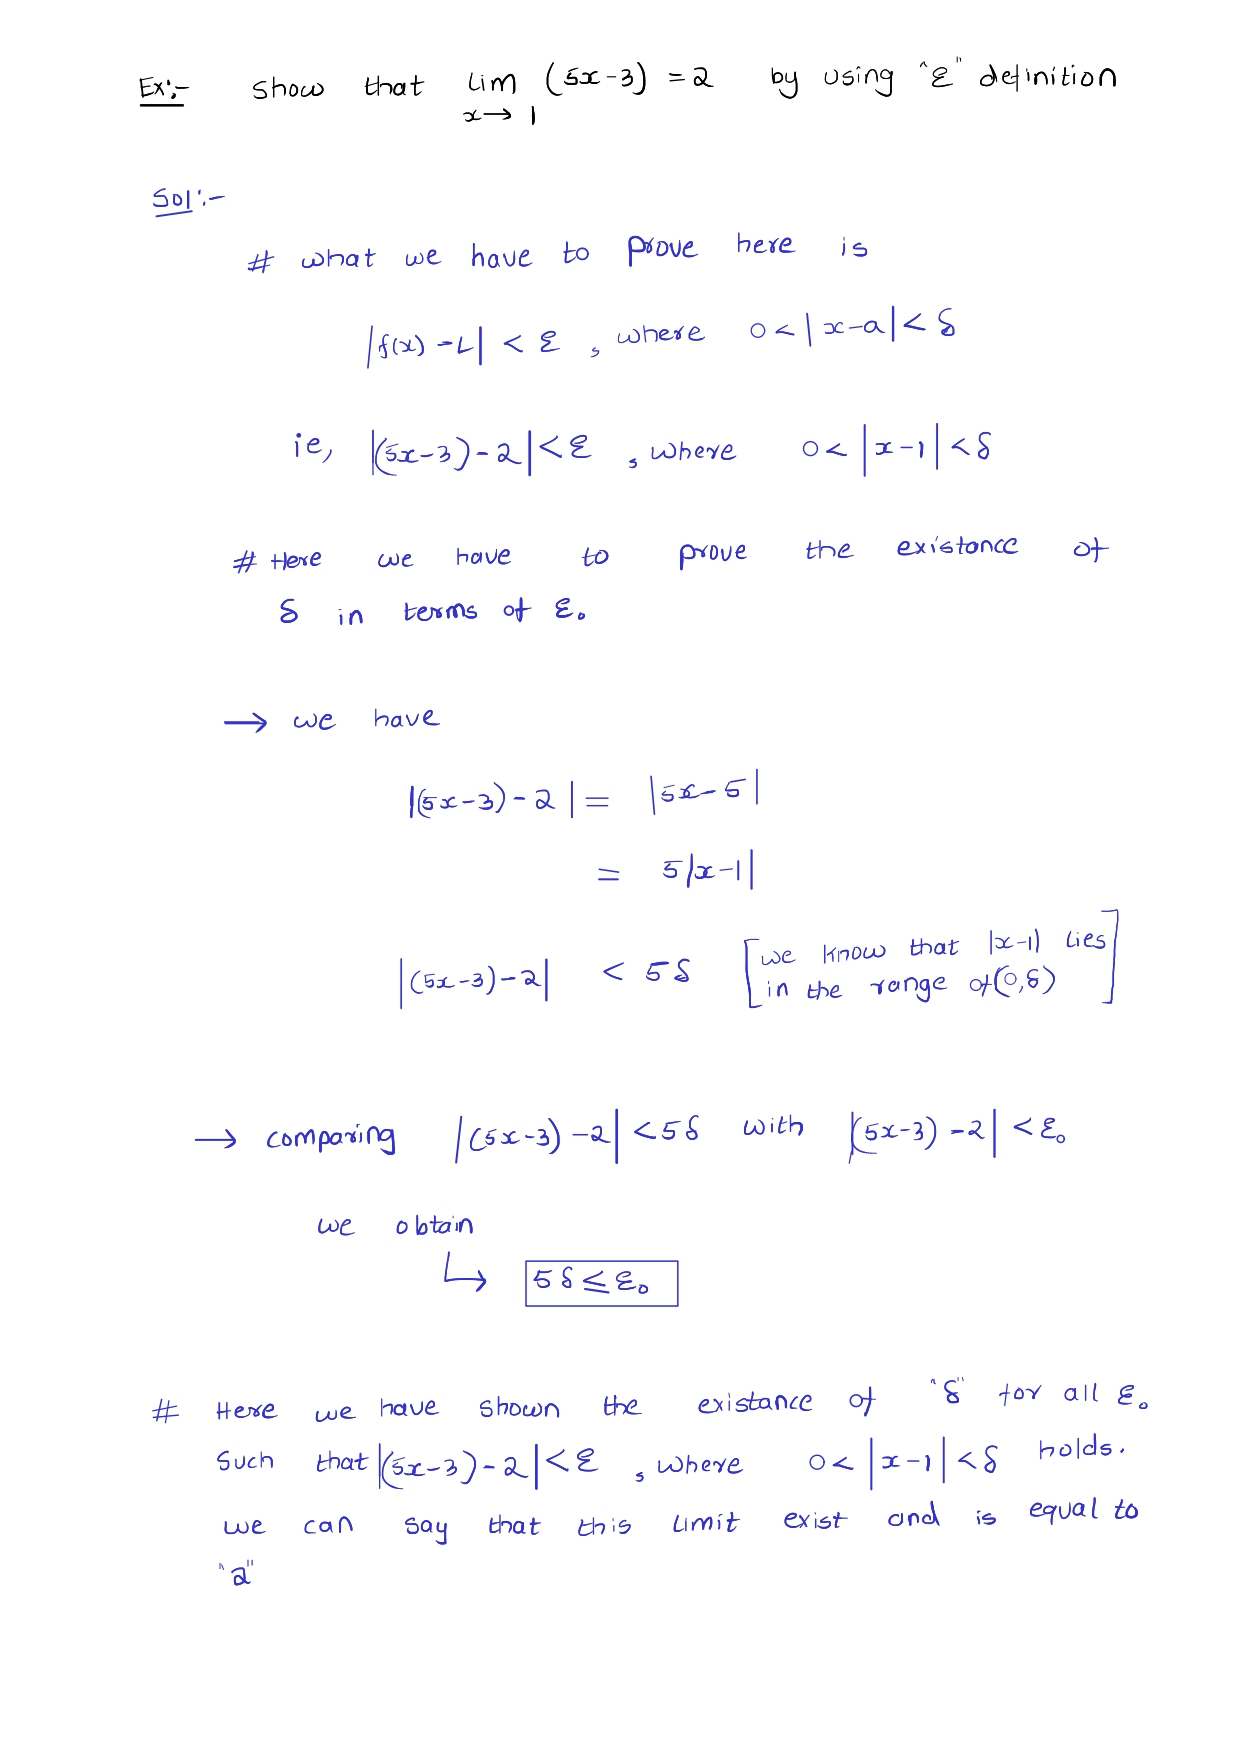 Ex:- show that lim (5x-3) = 2 by using "ε" definition
x→1
Sol:-
# what we have to prove here is
|f(x) - L| < ε , where 0 < |x-a| < δ
ie, |(5x-3)-2| < ε , where 0 < |x-1| < δ
# Here we have to prove the existance of
δ in terms of ε.
→ we have
|(5x-3)-2| = |5x-5|
= 5|x-1|
|(5x-3)-2| < 5δ [we know that |x-1| lies
in the range of (0,δ)]
→ comparing |(5x-3)-2| < 5δ with |(5x-3)-2| < ε.
we obtain
↳ 5δ ≤ ε.
# Here we have shown the existance of "δ" for all ε.
Such that |(5x-3)-2| < ε , where 0 < |x-1| < δ holds.
we can say that this limit exist and is equal to
"2"